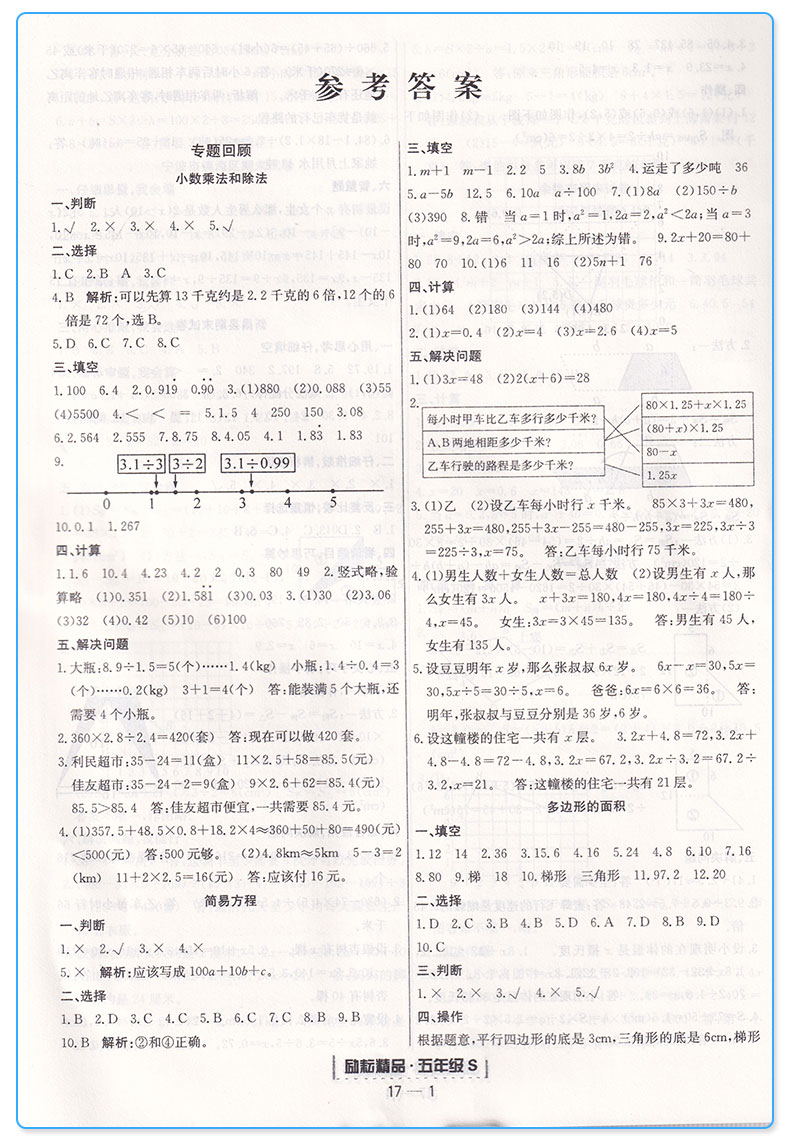 参考答案
专题回顾
小数乘法和除法
一、判断
1.√ 2.× 3.× 4.× 5.√
二、选择
1.C 2.B A 3.C
4.B 解析:可以先算13千克约是2.2千克的6倍,12个的6
倍是72个,选B。
5.D 6.C 7.C 8.C
三、填空
1.100 6.4 2.0.919̇ 0.9̇0̇ 3.(1)880 (2)0.088 (3)55
(4)5500 4.< < = 5.1.5 4 250 150 3.08
6.2.564 2.555 7.8.75 8.4.05 4.1 1.83̇ 1.83
9.
3.1÷3 3÷2 3.1÷0.99
0 1 2 3 4 5
10.0.1 1.267
四、计算
1.1.6 10.4 4.23 4.2 2 0.3 80 49 2.竖式略,验
算略 (1)0.351 (2)1.58̇1̇ (3)0.03 3.(1)30 (2)3.06
(3)32 (4)0.42 (5)10 (6)100
五、解决问题
1.大瓶:8.9÷1.5=5(个)……1.4(kg) 小瓶:1.4÷0.4=3
(个)……0.2(kg) 3+1=4(个) 答:能装满5个大瓶,还
需要4个小瓶。
2.360×2.8÷2.4=420(套) 答:现在可以做420套。
3.利民超市:35-24=11(盒) 11×2.5+58=85.5(元)
佳友超市:35-24-2=9(盒) 9×2.6+62=85.4(元)
85.5>85.4 答:佳友超市便宜,一共需要85.4元。
4.(1)357.5+48.5×0.8+18.2×4≈360+50+80=490(元)
<500(元) 答:500元够。 (2)4.8km≈5km 5-3=2
(km) 11+2×2.5=16(元) 答:应该付16元。
简易方程
一、判断
1.× 2.√ 3.× 4.×
5.× 解析:应该写成100a+10b+c。
二、选择
1.B 2.D 3.C 4.C 5.B 6.C 7.C 8.B 9.B
10.B 解析:②和④正确。
三、填空
1.m+1 m-1 2.2 5 3.8b 3b² 4.运走了多少吨 36
5.a-5b 12.5 6.10a a÷100 7.(1)8a (2)150÷b
(3)390 8.错 当a=1时,a²=1,2a=2,a²<2a;当a=3
时,a²=9,2a=6,a²>2a;综上所述为错。 9.2x+20=80+
80 70 10.(1)6 11 16 (2)5m+1 76
四、计算
1.(1)64 (2)180 (3)144 (4)480
2.(1)x=0.4 (2)x=4 (3)x=2.6 (4)x=5
五、解决问题
1.(1)3x=48 (2)2(x+6)=28
2.
每小时甲车比乙车多行多少千米?
A、B两地相距多少千米?
乙车行驶的路程是多少千米?
80×1.25+x×1.25
(80+x)×1.25
80-x
1.25x
3.(1)乙 (2)设乙车每小时行x千米。 85×3+3x=480,
255+3x=480,255+3x-255=480-255,3x=225,3x÷3
=225÷3,x=75。 答:乙车每小时行75千米。
4.(1)男生人数+女生人数=总人数 (2)设男生有x人,那
么女生有3x人。 x+3x=180,4x=180,4x÷4=180÷
4,x=45。 女生:3x=3×45=135。 答:男生有45人,
女生有135人。
5.设豆豆明年x岁,那么张叔叔6x岁。 6x-x=30,5x=
30,5x÷5=30÷5,x=6。 爸爸:6x=6×6=36。 答:
明年,张叔叔与豆豆分别是36岁,6岁。
6.设这幢楼的住宅一共有x层。 3.2x+4.8=72,3.2x+
4.8-4.8=72-4.8,3.2x=67.2,3.2x÷3.2=67.2÷
3.2,x=21。 答:这幢楼的住宅一共有21层。
多边形的面积
一、填空
1.12 14 2.36 3.15.6 4.16 5.24 4.8 6.10 7.16
8.80 9.梯 18 10.梯形 三角形 11.97.2 12.20
二、选择
1.D 2.C 3.B 4.B 5.D 6.A 7.D 8.B 9.D
10.C
三、判断
1.× 2.× 3.√ 4.× 5.√
四、操作
根据题意,平行四边形的底是3cm,三角形的底是6cm,梯形
励耘精品·五年级S
17—1